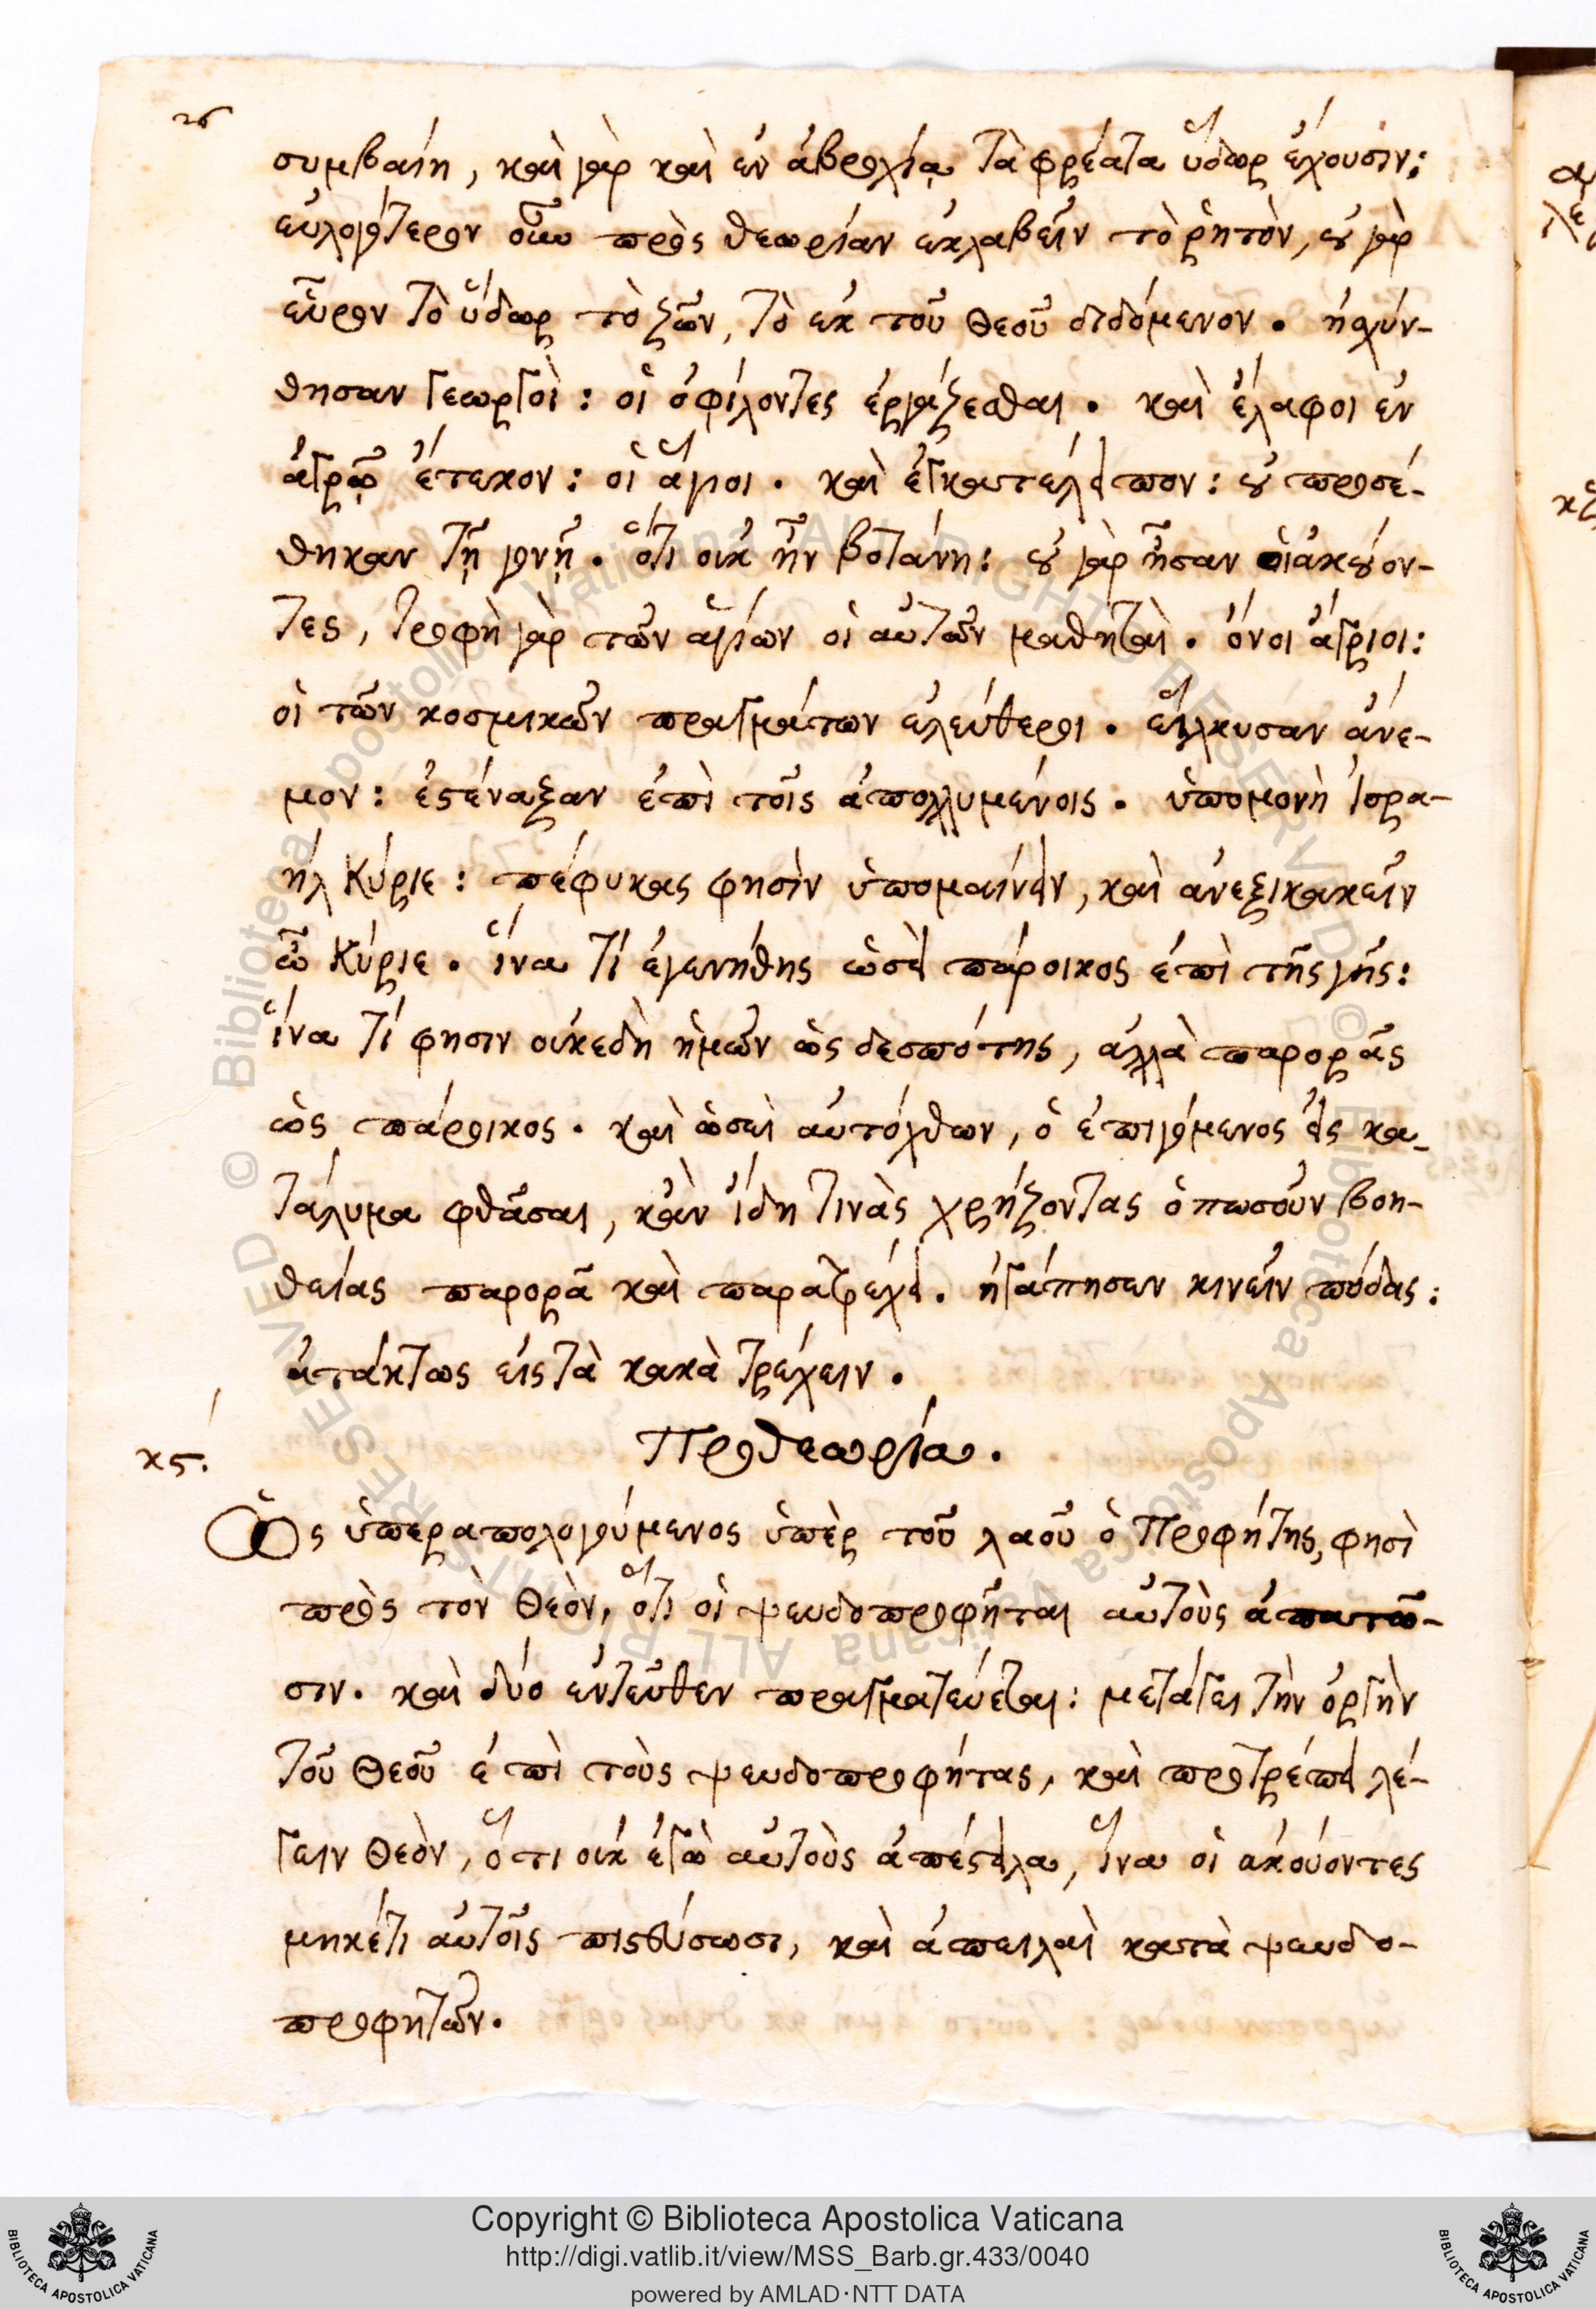 26
συμβαίη, καὶ γὰρ καὶ ἐν ἀβροχίᾳ τὰ φρέατα ὕδωρ ἔχουσιν:
εὐλογώτερον οὖν πρὸς θεωρίαν ἐκλαβεῖν τὸ ῥητὸν, οὐ γὰρ
εὗρον τὸ ὕδωρ τὸ ζῶν, τὸ ἐκ τοῦ Θεοῦ διδόμενον. ἠσχύν-
θησαν Γεωργοὶ: οἱ ὀφίλοντες ἐργάζεσθαι. καὶ ἔλαφοι ἐν
ἀγρῷ ἔτεκον: οἱ ἅγιοι. καὶ ἐγκατέλειπον: οὐ προσέ-
θηκαν τῇ γονῇ. ὅτι οὐκ ἦν βοτάνη: οὐ γὰρ ἦσαν οἱ ἀκούον-
τες, τροφὴ γὰρ τῶν ἁγίων οἱ αὐτῶν μαθηταὶ. ὄνοι ἄγριοι:
οἱ τῶν κοσμικῶν πραγμάτων ἐλεύθεροι. εἵλκυσαν ἄνε-
μον: ἐστέναξαν ἐπὶ τοῖς ἀπολλυμένοις. ὑπομονὴ Ἰσρα-
ήλ Κύριε: πέφυκας φησὶν ὑπομαίνειν, καὶ ἀνεξικακεῖν
ὦ Κύριε. ἵνα τί ἐγενήθης ὡσεὶ πάροικος ἐπὶ τῆς γῆς:
ἵνα τί φησιν οὐ κεδὴ ἡμῶν ὡς δεσπότης, ἀλλὰ παρορᾶς
ὡς πάροικος. καὶ ὡσεὶ αὐτόχθων, ὁ ἐπιγόμενος εἰς κα-
τάλυμα φθᾶσαι, κἂν ἴδη τινὰς χρήζοντας ὁπωσοῦν βοη-
θείας παρορᾶ καὶ παρατρέχει. ἠγάπησεν κινεῖν πόδας:
ἀτάκτως εἰς τὰ κακὰ τρέχειν.
Προθεωρία.
κϛ.
Ὡς ὑπεραπολογούμενος ὑπὲρ τοῦ λαοῦ ὁ Προφήτης, φησὶ
πρὸς τὸν Θεὸν, ὅτι οἱ ψευδοπροφῆται αὐτοὺς ἀπατῶ-
σιν. καὶ δύο ἐντεῦθεν πραγματεύεται: μετάγει τὴν ὀργὴν
τοῦ Θεοῦ ἐπὶ τοὺς ψευδοπροφήτας, καὶ προτρέπει λέ-
γειν Θεὸν, ὅτι οὐκ ἐγὼ αὐτοὺς ἀπέστειλα, ἵνα οἱ ἀκούοντες
μηκέτι αὐτοῖς πιστεύσωσι, καὶ ἀπειλαὶ κατὰ ψευδο-
προφητῶν.
Copyright © Biblioteca Apostolica Vaticana
http://digi.vatlib.it/view/MSS_Barb.gr.433/0040
powered by AMLAD·NTT DATA